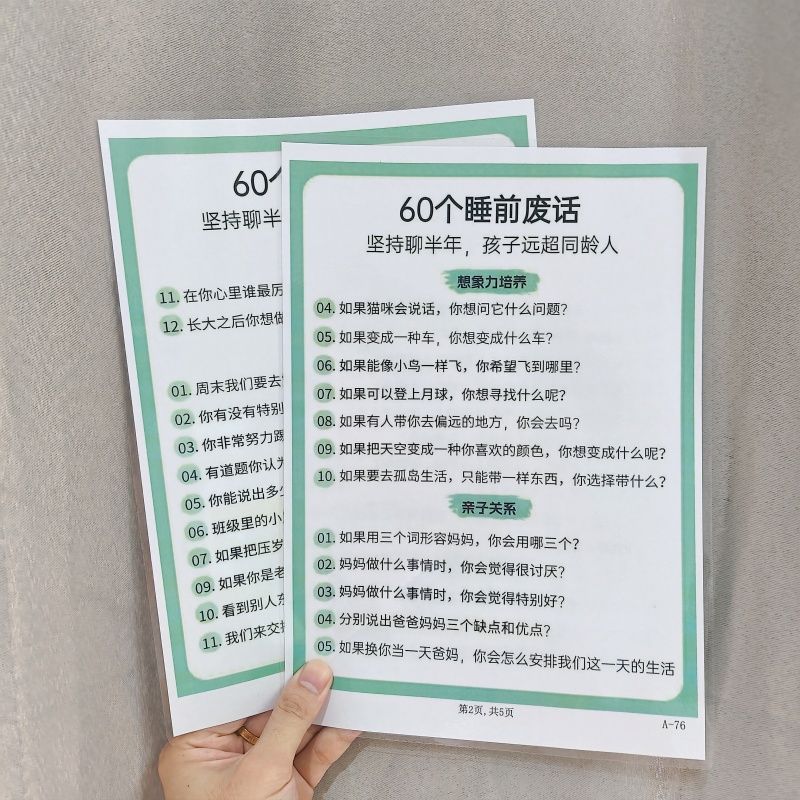 60个
坚持聊半
11. 在你心里谁最厉
12. 长大之后你想做
01. 周末我们要去
02. 你有没有特别
03. 你非常努力踢
04. 有道题你认为
05. 你能说出多少
06. 班级里的小
07. 如果把压岁
09. 如果你是老
10. 看到别人东
11. 我们来交换
60个睡前废话
坚持聊半年，孩子远超同龄人
想象力培养
04. 如果猫咪会说话，你想问它什么问题？
05. 如果变成一种车，你想变成什么车？
06. 如果能像小鸟一样飞，你希望飞到哪里？
07. 如果可以登上月球，你想寻找什么呢？
08. 如果有人带你去偏远的地方，你会去吗？
09. 如果把天空变成一种你喜欢的颜色，你想变成什么呢？
10. 如果要去孤岛生活，只能带一样东西，你选择带什么？
亲子关系
01. 如果用三个词形容妈妈，你会用哪三个？
02. 妈妈做什么事情时，你会觉得很讨厌？
03. 妈妈做什么事情时，你会觉得特别好？
04. 分别说出爸爸妈妈三个缺点和优点？
05. 如果换你当一天爸妈，你会怎么安排我们这一天的生活
第2页,共5页
A-76